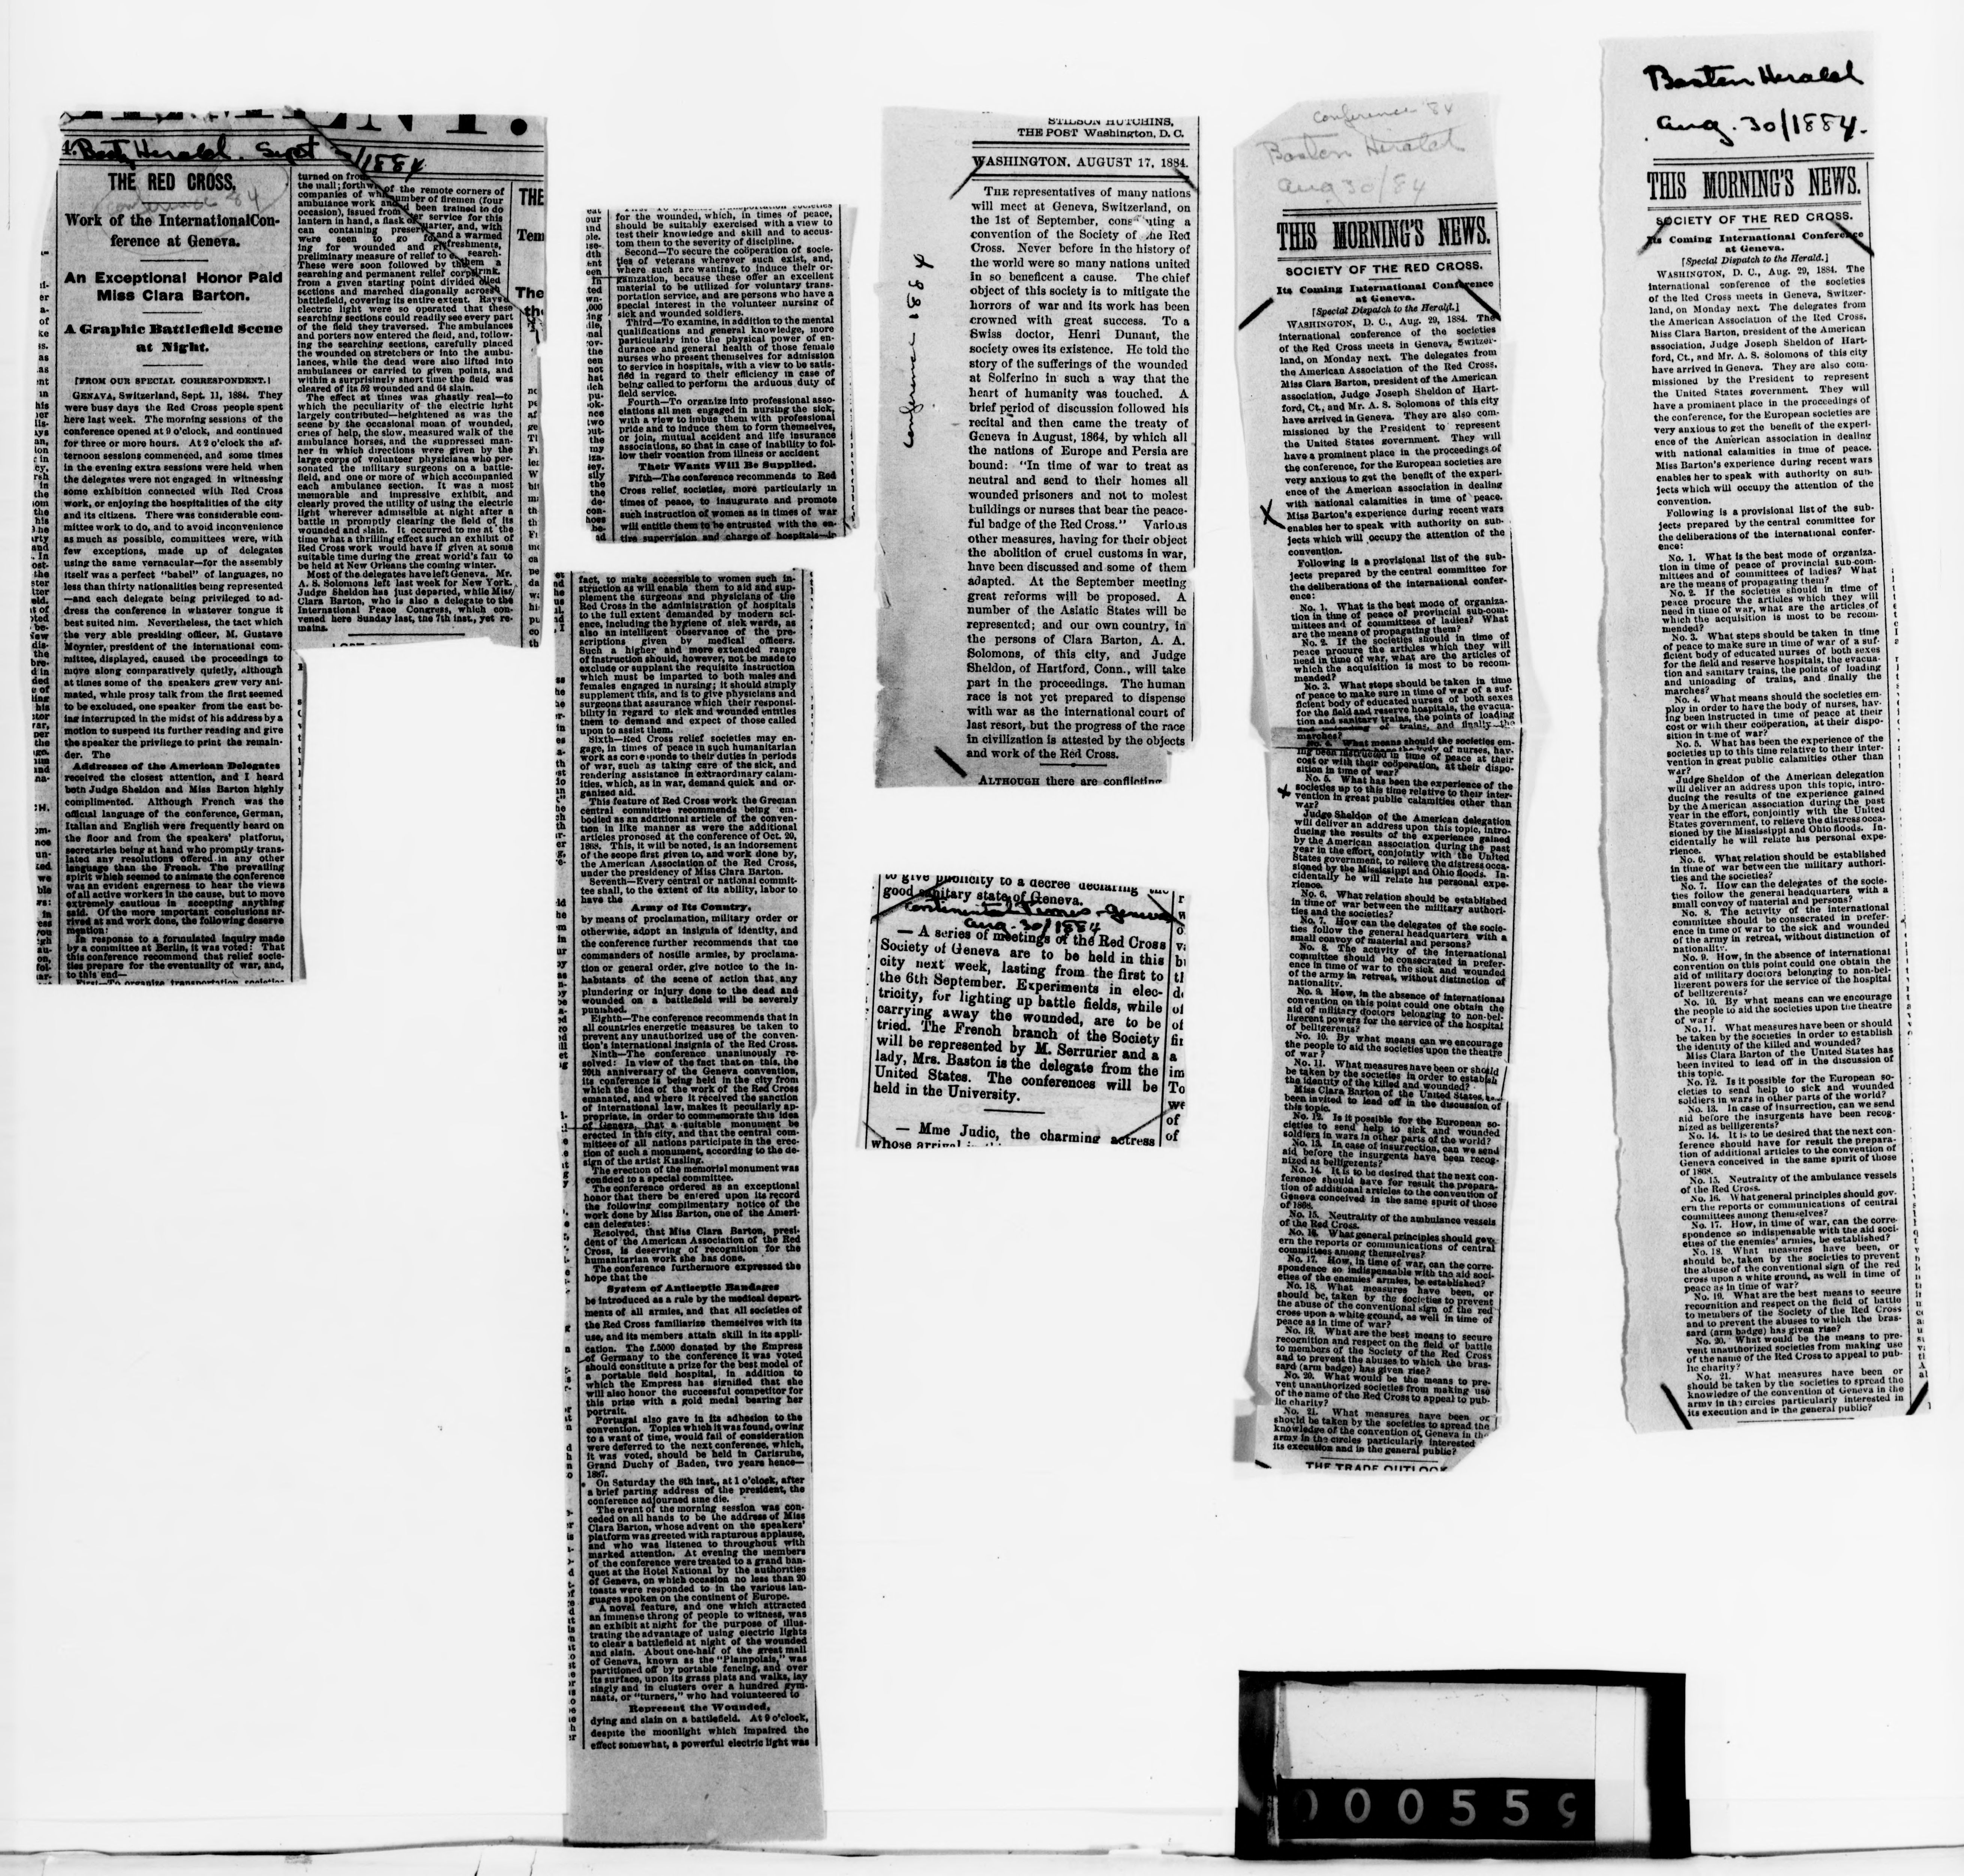 Bost Herald. Sept /1884
THE RED CROSS.
conference 84
Work of the InternationalCon-
ference at Geneva.
An Exceptional Honor Paid
Miss Clara Barton.
A Graphic Battlefield Scene
at Night.
[FROM OUR SPECIAL CORRESPONDENT.]
GENAVA, Switzerland, Sept. 11, 1884. They
were busy days the Red Cross people spent
here last week. The morning sessions of the
conference opened at 9 o'clock, and continued
for three or more hours. At 2 o'clock the af-
ternoon sessions commenced, and some times
in the evening extra sessions were held when
the delegates were not engaged in witnessing
some exhibition connected with Red Cross
work, or enjoying the hospitalities of the city
and its citizens. There was considerable com-
mittee work to do, and to avoid inconvenience
as much as possible, committees were, with
few exceptions, made up of delegates
using the same vernacular—for the assembly
itself was a perfect "babel" of languages, no
less than thirty nationalities being represented
—and each delegate being privileged to ad-
dress the conference in whatever tongue it
best suited him. Nevertheless, the tact which
the very able presiding officer, M. Gustave
Moynier, president of the international com-
mittee, displayed, caused the proceedings to
move along comparatively quietly, although
at times some of the speakers grew very ani-
mated, while prosy talk from the first seemed
to be excluded, one speaker from the east be-
ing interrupted in the midst of his address by a
motion to suspend its further reading and give
the speaker the privilege to print the remain-
der. The
Addresses of the American Delegates
received the closest attention, and I heard
both Judge Sheldon and Miss Barton highly
complimented. Although French was the
official language of the conference, German,
Italian and English were frequently heard on
the floor and from the speakers' platform,
secretaries being at hand who promptly trans-
lated any resolutions offered in any other
language than the French. The prevailing
spirit which seemed to animate the conference
was an evident eagerness to hear the views
of all active workers in the cause, but to move
extremely cautious in accepting anything
said. Of the more important conclusions ar-
rived at and work done, the following deserve
mention:
In response to a formulated inquiry made
by a committee at Berlin, it was voted: That
this conference recommend that relief socie-
ties prepare for the eventuality of war, and,
to this end—
First—To organize transportation societies
turned on from
the mall; forthwi
companies of wh
ambulance work and
occasion), issued from
lantern in hand, a flask of
can containing preserv
were seen to go fo
ing for wounded and giv
preliminary measure of relief to
These were soon followed by them a
searching and permanent relief corps
from a given starting point divided
sections and marched diagonally across
battlefield, covering its entire extent. Rays
electric light were so operated that these
searching sections could readily see every part
of the field they traversed. The ambulances
and porters now entered the field, and, follow-
ing the searching sections, carefully placed
the wounded on stretchers or into the ambu-
lances, while the dead were also lifted into
ambulances or carried to given points, and
within a surprisingly short time the field was
cleared of its 52 wounded and 64 slain.
The effect at times was ghastly real—to
which the peculiarity of the electric light
largely contributed—heightened as was the
scene by the occasional moan of wounded,
cries of help, the slow, measured walk of the
ambulance horses, and the suppressed man-
ner in which directions were given by the
large corps of volunteer physicians who per-
sonated the military surgeons on a battle-
field, and one or more of which accompanied
each ambulance section. It was a most
memorable and impressive exhibit, and
clearly proved the utility of using the electric
light wherever admissible at night after a
battle in promptly clearing the field of its
wounded and slain. It occurred to me at the
time what a thrilling effect such an exhibit of
Red Cross work would have if given at some
suitable time during the great world's fair to
be held at New Orleans the coming winter.
Most of the delegates have left Geneva. Mr.
A. S. Solomons left last week for New York.
Judge Sheldon has just departed, while Miss
Clara Barton, who is also a delegate to the
International Peace Congress, which con-
vened here Sunday last, the 7th inst., yet re-
mains.
of the remote corners of
umber of firemen (four
been trained to do
ter service for this
arter, and, with
and a warmed
freshments,
search-
drink.
THE
Tem
The
th
First—To organize transportation societies
for the wounded, which, in times of peace,
should be suitably exercised with a view to
test their knowledge and skill and to accus-
tom them to the severity of discipline.
Second—To secure the coöperation of socie-
ties of veterans wherever such exist, and,
where such are wanting, to induce their or-
ganization, because these offer an excellent
material to be utilized for voluntary trans-
portation service, and are persons who have a
special interest in the volunteer nursing of
sick and wounded soldiers.
Third—To examine, in addition to the mental
qualifications and general knowledge, more
particularly into the physical power of en-
durance and general health of those female
nurses who present themselves for admission
to service in hospitals, with a view to be satis-
fied in regard to their efficiency in case of
being called to perform the arduous duty of
field service.
Fourth—To organize into professional asso-
ciations all men engaged in nursing the sick,
with a view to imbue them with professional
pride and to induce them to form themselves,
or join, mutual accident and life insurance
associations, so that in case of inability to fol-
low their vocation from illness or accident
Their Wants Will Be Supplied.
Fifth—The conference recommends to Red
Cross relief societies, more particularly in
times of peace, to inaugurate and promote
such instruction of women as in times of war
will entitle them to be entrusted with the en-
tire supervision and charge of hospitals—in
fact, to make accessible to women such in-
struction as will enable them to aid and sup-
plement the surgeons and physicians of the
Red Cross in the administration of hospitals
to the full extent demanded by modern sci-
ence, including the hygiene of sick wards, as
also an intelligent observance of the pre-
scriptions given by medical officers.
Such a higher and more extended range
of instruction should, however, not be made to
exclude or supplant the requisite instruction
which must be imparted to both males and
females engaged in nursing; it should simply
supplement this, and is to give physicians and
surgeons that assurance which their responsi-
bility in regard to sick and wounded entitles
them to demand and expect of those called
upon to assist them.
Sixth—Red Cross relief societies may en-
gage, in times of peace in such humanitarian
work as corresponds to their duties in periods
of war, such as taking care of the sick, and
rendering assistance in extraordinary calam-
ities, which, as in war, demand quick and or-
ganized aid.
This feature of Red Cross work the Grecian
central committee recommends being em-
bodied as an additional article of the conven-
tion in like manner as were the additional
articles proposed at the conference of Oct. 20,
1868. This, it will be noted, is an indorsement
of the scope first given to, and work done by,
the American Association of the Red Cross,
under the presidency of Miss Clara Barton.
Seventh—Every central or national commit-
tee shall, to the extent of its ability, labor to
have the
Army of Its Country,
by means of proclamation, military order or
otherwise, adopt an insignia of identity, and
the conference further recommends that the
commanders of hostile armies, by proclama-
tion or general order, give notice to the in-
habitants of the scene of action that any
plundering or injury done to the dead and
wounded on a battlefield will be severely
punished.
Eighth—The conference recommends that in
all countries energetic measures be taken to
prevent any unauthorized use of the conven-
tion's international insignia of the Red Cross.
Ninth—The conference unanimously re-
solved: In view of the fact that on this, the
20th anniversary of the Geneva convention,
its conference is being held in the city from
which the idea of the work of the Red Cross
emanated, and where it received the sanction
of international law, makes it peculiarly ap-
propriate, in order to commemorate this idea
of Geneva, that a suitable monument be
erected in this city, and that the central com-
mittees of all nations participate in the erec-
tion of such a monument, according to the de-
sign of the artist Kissling.
The erection of the memorial monument was
confided to a special committee.
The conference ordered as an exceptional
honor that there be entered upon its record
the following complimentary notice of the
work done by Miss Barton, one of the Ameri-
can delegates:
Resolved, that Miss Clara Barton, presi-
dent of the American Association of the Red
Cross, is deserving of recognition for the
humanitarian work she has done.
The conference furthermore expressed the
hope that the
System of Antiseptic Bandages
be introduced as a rule by the medical depart-
ments of all armies, and that all societies of
the Red Cross familiarize themselves with its
use, and its members attain skill in its appli-
cation. The f.5000 donated by the Empress
of Germany to the conference it was voted
should constitute a prize for the best model of
a portable field hospital, in addition to
which the Empress has signified that she
will also honor the successful competitor for
this prize with a gold medal bearing her
portrait.
Portugal also gave in its adhesion to the
convention. Topics which it was found, owing
to a want of time, would fail of consideration
were deferred to the next conference, which,
it was voted, should be held in Carlsruhe,
Grand Duchy of Baden, two years hence—
1887.
On Saturday the 6th inst., at 1 o'clock, after
a brief parting address of the president, the
conference adjourned sine die.
The event of the morning session was con-
ceded on all hands to be the address of Miss
Clara Barton, whose advent on the speakers'
platform was greeted with rapturous applause,
and who was listened to throughout with
marked attention. At evening the members
of the conference were treated to a grand ban-
quet at the Hotel National by the authorities
of Geneva, on which occasion no less than 20
toasts were responded to in the various lan-
guages spoken on the continent of Europe.
A novel feature, and one which attracted
an immense throng of people to witness, was
an exhibit at night for the purpose of illus-
trating the advantage of using electric lights
to clear a battlefield at night of the wounded
and slain. About one-half of the great mall
of Geneva, known as the "Plainpolais," was
partitioned off by portable fencing, and over
its surface, upon its grass plats and walks, lay
singly and in clusters over a hundred gym-
nasts, or "turners," who had volunteered to
Represent the Wounded,
dying and slain on a battlefield. At 9 o'clock,
despite the moonlight which impaired the
effect somewhat, a powerful electric light was
STILSON HUTCHINS,
THE POST Washington, D. C.
WASHINGTON, AUGUST 17, 1884.
conference 1884
THE representatives of many nations
will meet at Geneva, Switzerland, on
the 1st of September, cons uting a
convention of the Society of the Red
Cross. Never before in the history of
the world were so many nations united
in so beneficent a cause. The chief
object of this society is to mitigate the
horrors of war and its work has been
crowned with great success. To a
Swiss doctor, Henri Dunant, the
society owes its existence. He told the
story of the sufferings of the wounded
at Solferino in such a way that the
heart of humanity was touched. A
brief period of discussion followed his
recital and then came the treaty of
Geneva in August, 1864, by which all
the nations of Europe and Persia are
bound: "In time of war to treat as
neutral and send to their homes all
wounded prisoners and not to molest
buildings or nurses that bear the peace-
ful badge of the Red Cross." Various
other measures, having for their object
the abolition of cruel customs in war,
have been discussed and some of them
adapted. At the September meeting
great reforms will be proposed. A
number of the Asiatic States will be
represented; and our own country, in
the persons of Clara Barton, A. A.
Solomons, of this city, and Judge
Sheldon, of Hartford, Conn., will take
part in the proceedings. The human
race is not yet prepared to dispense
with war as the international court of
last resort, but the progress of the race
in civilization is attested by the objects
and work of the Red Cross.
ALTHOUGH there are conflicting
to give publicity to a decree declaring the
good sanitary state of Geneva.
Continental Times - Geneva
Aug. 30/1884
— A series of meetings of the Red Cross
Society of Geneva are to be held in this
city next week, lasting from the first to
the 6th September. Experiments in elec-
tricity, for lighting up battle fields, while
carrying away the wounded, are to be
tried. The French branch of the Society
will be represented by M. Serrurier and a
lady, Mrs. Baston is the delegate from the
United States. The conferences will be
held in the University.
— Mme Judic, the charming actress
whose arrival
conference '84
Boston Herald
Aug 30/84
THIS MORNING'S NEWS.
SOCIETY OF THE RED CROSS.
Its Coming International Conference
at Geneva.
[Special Dispatch to the Herald.]
WASHINGTON, D. C., Aug. 29, 1884. The
international conference of the societies
of the Red Cross meets in Geneva, Switzer-
land, on Monday next. The delegates from
the American Association of the Red Cross,
Miss Clara Barton, president of the American
association, Judge Joseph Sheldon of Hart-
ford, Ct., and Mr. A. S. Solomons of this city
have arrived in Geneva. They are also com-
missioned by the President to represent
the United States government. They will
have a prominent place in the proceedings of
the conference, for the European societies are
very anxious to get the benefit of the experi-
ence of the American association in dealing
with national calamities in time of peace.
Miss Barton's experience during recent wars
enables her to speak with authority on sub-
jects which will occupy the attention of the
convention.
Following is a provisional list of the sub-
jects prepared by the central committee for
the deliberations of the international confer-
ence:
No. 1. What is the best mode of organiza-
tion in time of peace of provincial sub-com-
mittees and of committees of ladies? What
are the means of propagating them?
No. 2. If the societies should in time of
peace procure the articles which they will
need in time of war, what are the articles of
which the acquisition is most to be recom-
mended?
No. 3. What steps should be taken in time
of peace to make sure in time of war of a suf-
ficient body of educated nurses of both sexes
for the field and reserve hospitals, the evacua-
tion and sanitary trains, the points of loading
and unloading of trains, and finally the
marches?
No. 4. What means should the societies em-
ing been instructed the body of nurses, hav-
cost or with their coöperation, at their dispo-
sition in time of war?
No. 5. What has been the experience of the
societies up to this time relative to their inter-
vention in great public calamities other than
war?
Judge Sheldon of the American delegation
will deliver an address upon this topic, intro-
ducing the results of the experience gained
by the American association during the past
year in the effort, conjointly with the United
States government, to relieve the distress occa-
sioned by the Mississippi and Ohio floods. In-
cidentally he will relate his personal expe-
rience.
No. 6. What relation should be established
in time of war between the military authori-
ties and the societies?
No. 7. How can the delegates of the socie-
ties follow the general headquarters with a
small convoy of material and persons?
No. 8. The activity of the international
committee should be consecrated in prefer-
ence in time of war to the sick and wounded
of the army in retreat, without distinction of
nationality.
No. 9. How, in the absence of international
convention on this point could one obtain the
aid of military doctors belonging to non-bel-
ligerent powers for the service of the hospital
of belligerents?
No. 10. By what means can we encourage
the people to aid the societies upon the theatre
of war?
No. 11. What measures have been or should
be taken by the societies in order to establish
the identity of the killed and wounded?
Miss Clara Barton of the United States has
been invited to lead off in the discussion of
this topic.
No. 12. Is it possible for the European so-
cieties to send help to sick and wounded
soldiers in wars in other parts of the world?
No. 13. In case of insurrection, can we send
aid before the insurgents have been recog-
nized as belligerents?
No. 14. It is to be desired that the next con-
ference should have for result the prepara-
tion of additional articles to the convention of
Geneva conceived in the same spirit of those
of 1868.
No. 15. Neutrality of the ambulance vessels
of the Red Cross.
No. 16. What general principles should gov-
ern the reports or communications of central
committees among themselves?
No. 17. How, in time of war, can the corre-
spondence so indispensable with the aid soci-
eties of the enemies' armies, be established?
No. 18. What measures have been, or
should be, taken by the societies to prevent
the abuse of the conventional sign of the red
cross upon a white ground, as well in time of
peace as in time of war?
No. 19. What are the best means to secure
recognition and respect on the field of battle
to members of the Society of the Red Cross
and to prevent the abuses to which the bras-
sard (arm badge) has given rise?
No. 20. What would be the means to pre-
vent unauthorized societies from making use
of the name of the Red Cross to appeal to pub-
lic charity?
No. 21. What measures have been or
should be taken by the societies to spread the
knowledge of the convention of Geneva in the
army in the circles particularly interested in
its execution and in the general public?
THE TRADE OUTLOOK
Boston Herald
Aug. 30/1884.
THIS MORNING'S NEWS.
SOCIETY OF THE RED CROSS.
Its Coming International Conference
at Geneva.
[Special Dispatch to the Herald.]
WASHINGTON, D. C., Aug. 29, 1884. The
international conference of the societies
of the Red Cross meets in Geneva, Switzer-
land, on Monday next. The delegates from
the American Association of the Red Cross,
Miss Clara Barton, president of the American
association, Judge Joseph Sheldon of Hart-
ford, Ct., and Mr. A. S. Solomons of this city
have arrived in Geneva. They are also com-
missioned by the President to represent
the United States government. They will
have a prominent place in the proceedings of
the conference, for the European societies are
very anxious to get the benefit of the experi-
ence of the American association in dealing
with national calamities in time of peace.
Miss Barton's experience during recent wars
enables her to speak with authority on sub-
jects which will occupy the attention of the
convention.
Following is a provisional list of the sub-
jects prepared by the central committee for
the deliberations of the international confer-
ence:
No. 1. What is the best mode of organiza-
tion in time of peace of provincial sub-com-
mittees and of committees of ladies? What
are the means of propagating them?
No. 2. If the societies should in time of
peace procure the articles which they will
need in time of war, what are the articles of
which the acquisition is most to be recom-
mended?
No. 3. What steps should be taken in time
of peace to make sure in time of war of a suf-
ficient body of educated nurses of both sexes
for the field and reserve hospitals, the evacua-
tion and sanitary trains, the points of loading
and unloading of trains, and finally the
marches?
No. 4. What means should the societies em-
ploy in order to have the body of nurses, hav-
ing been instructed in time of peace at their
cost or with their coöperation, at their dispo-
sition in time of war?
No. 5. What has been the experience of the
societies up to this time relative to their inter-
vention in great public calamities other than
war?
Judge Sheldon of the American delegation
will deliver an address upon this topic, intro-
ducing the results of the experience gained
by the American association during the past
year in the effort, conjointly with the United
States government, to relieve the distress occa-
sioned by the Mississippi and Ohio floods. In-
cidentally he will relate his personal expe-
rience.
No. 6. What relation should be established
in time of war between the military authori-
ties and the societies?
No. 7. How can the delegates of the socie-
ties follow the general headquarters with a
small convoy of material and persons?
No. 8. The activity of the international
committee should be consecrated in prefer-
ence in time of war to the sick and wounded
of the army in retreat, without distinction of
nationality.
No. 9. How, in the absence of international
convention on this point could one obtain the
aid of military doctors belonging to non-bel-
ligerent powers for the service of the hospital
of belligerents?
No. 10. By what means can we encourage
the people to aid the societies upon the theatre
of war?
No. 11. What measures have been or should
be taken by the societies in order to establish
the identity of the killed and wounded?
Miss Clara Barton of the United States has
been invited to lead off in the discussion of
this topic.
No. 12. Is it possible for the European so-
cieties to send help to sick and wounded
soldiers in wars in other parts of the world?
No. 13. In case of insurrection, can we send
aid before the insurgents have been recog-
nized as belligerents?
No. 14. It is to be desired that the next con-
ference should have for result the prepara-
tion of additional articles to the convention of
Geneva conceived in the same spirit of those
of 1868.
No. 15. Neutrality of the ambulance vessels
of the Red Cross.
No. 16. What general principles should gov-
ern the reports or communications of central
committees among themselves?
No. 17. How, in time of war, can the corre-
spondence so indispensable with the aid soci-
eties of the enemies' armies, be established?
No. 18. What measures have been, or
should be, taken by the societies to prevent
the abuse of the conventional sign of the red
cross upon a white ground, as well in time of
peace as in time of war?
No. 19. What are the best means to secure
recognition and respect on the field of battle
to members of the Society of the Red Cross
and to prevent the abuses to which the bras-
sard (arm badge) has given rise?
No. 20. What would be the means to pre-
vent unauthorized societies from making use
of the name of the Red Cross to appeal to pub-
lic charity?
No. 21. What measures have been or
should be taken by the societies to spread the
knowledge of the convention of Geneva in the
army in the circles particularly interested in
its execution and in the general public?
000559